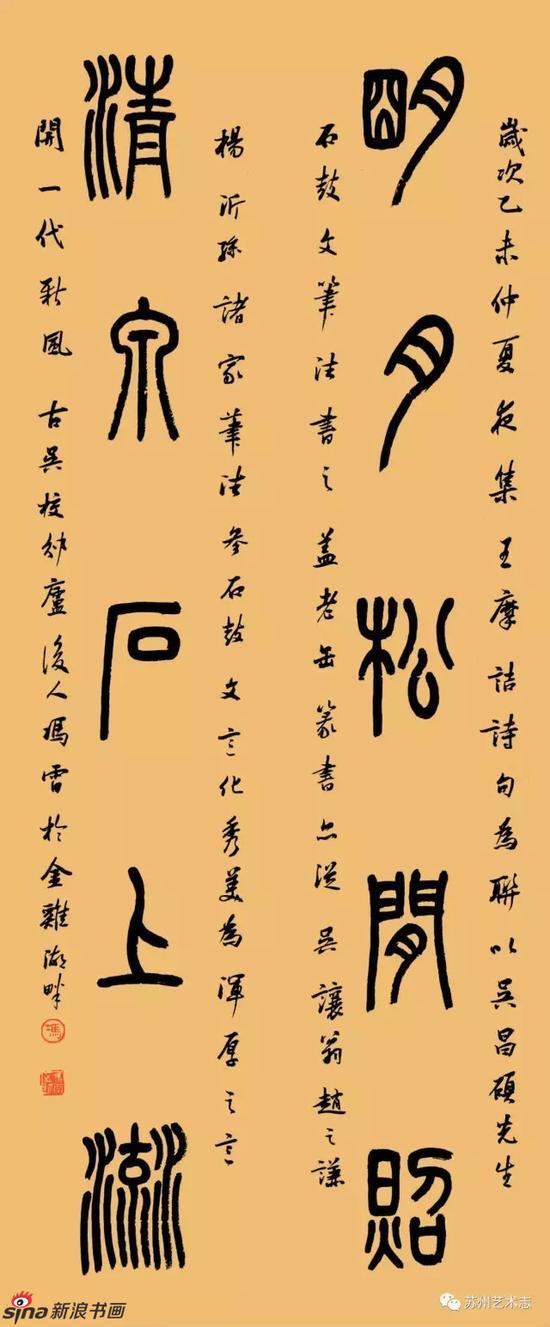 歲次乙未仲夏夜集王摩詰詩句為聯以吳昌碩先生
明月松閒照
石鼓文筆法書之蓋老缶篆書亦從吳讓翁趙之謙
楊沂孫諸家筆法參石鼓文意化秀美為渾厚之意
清泉石上流
開一代新風 古吳廬後人馮雪於金雞湖畔
馮
sina新浪书画
苏州艺术志